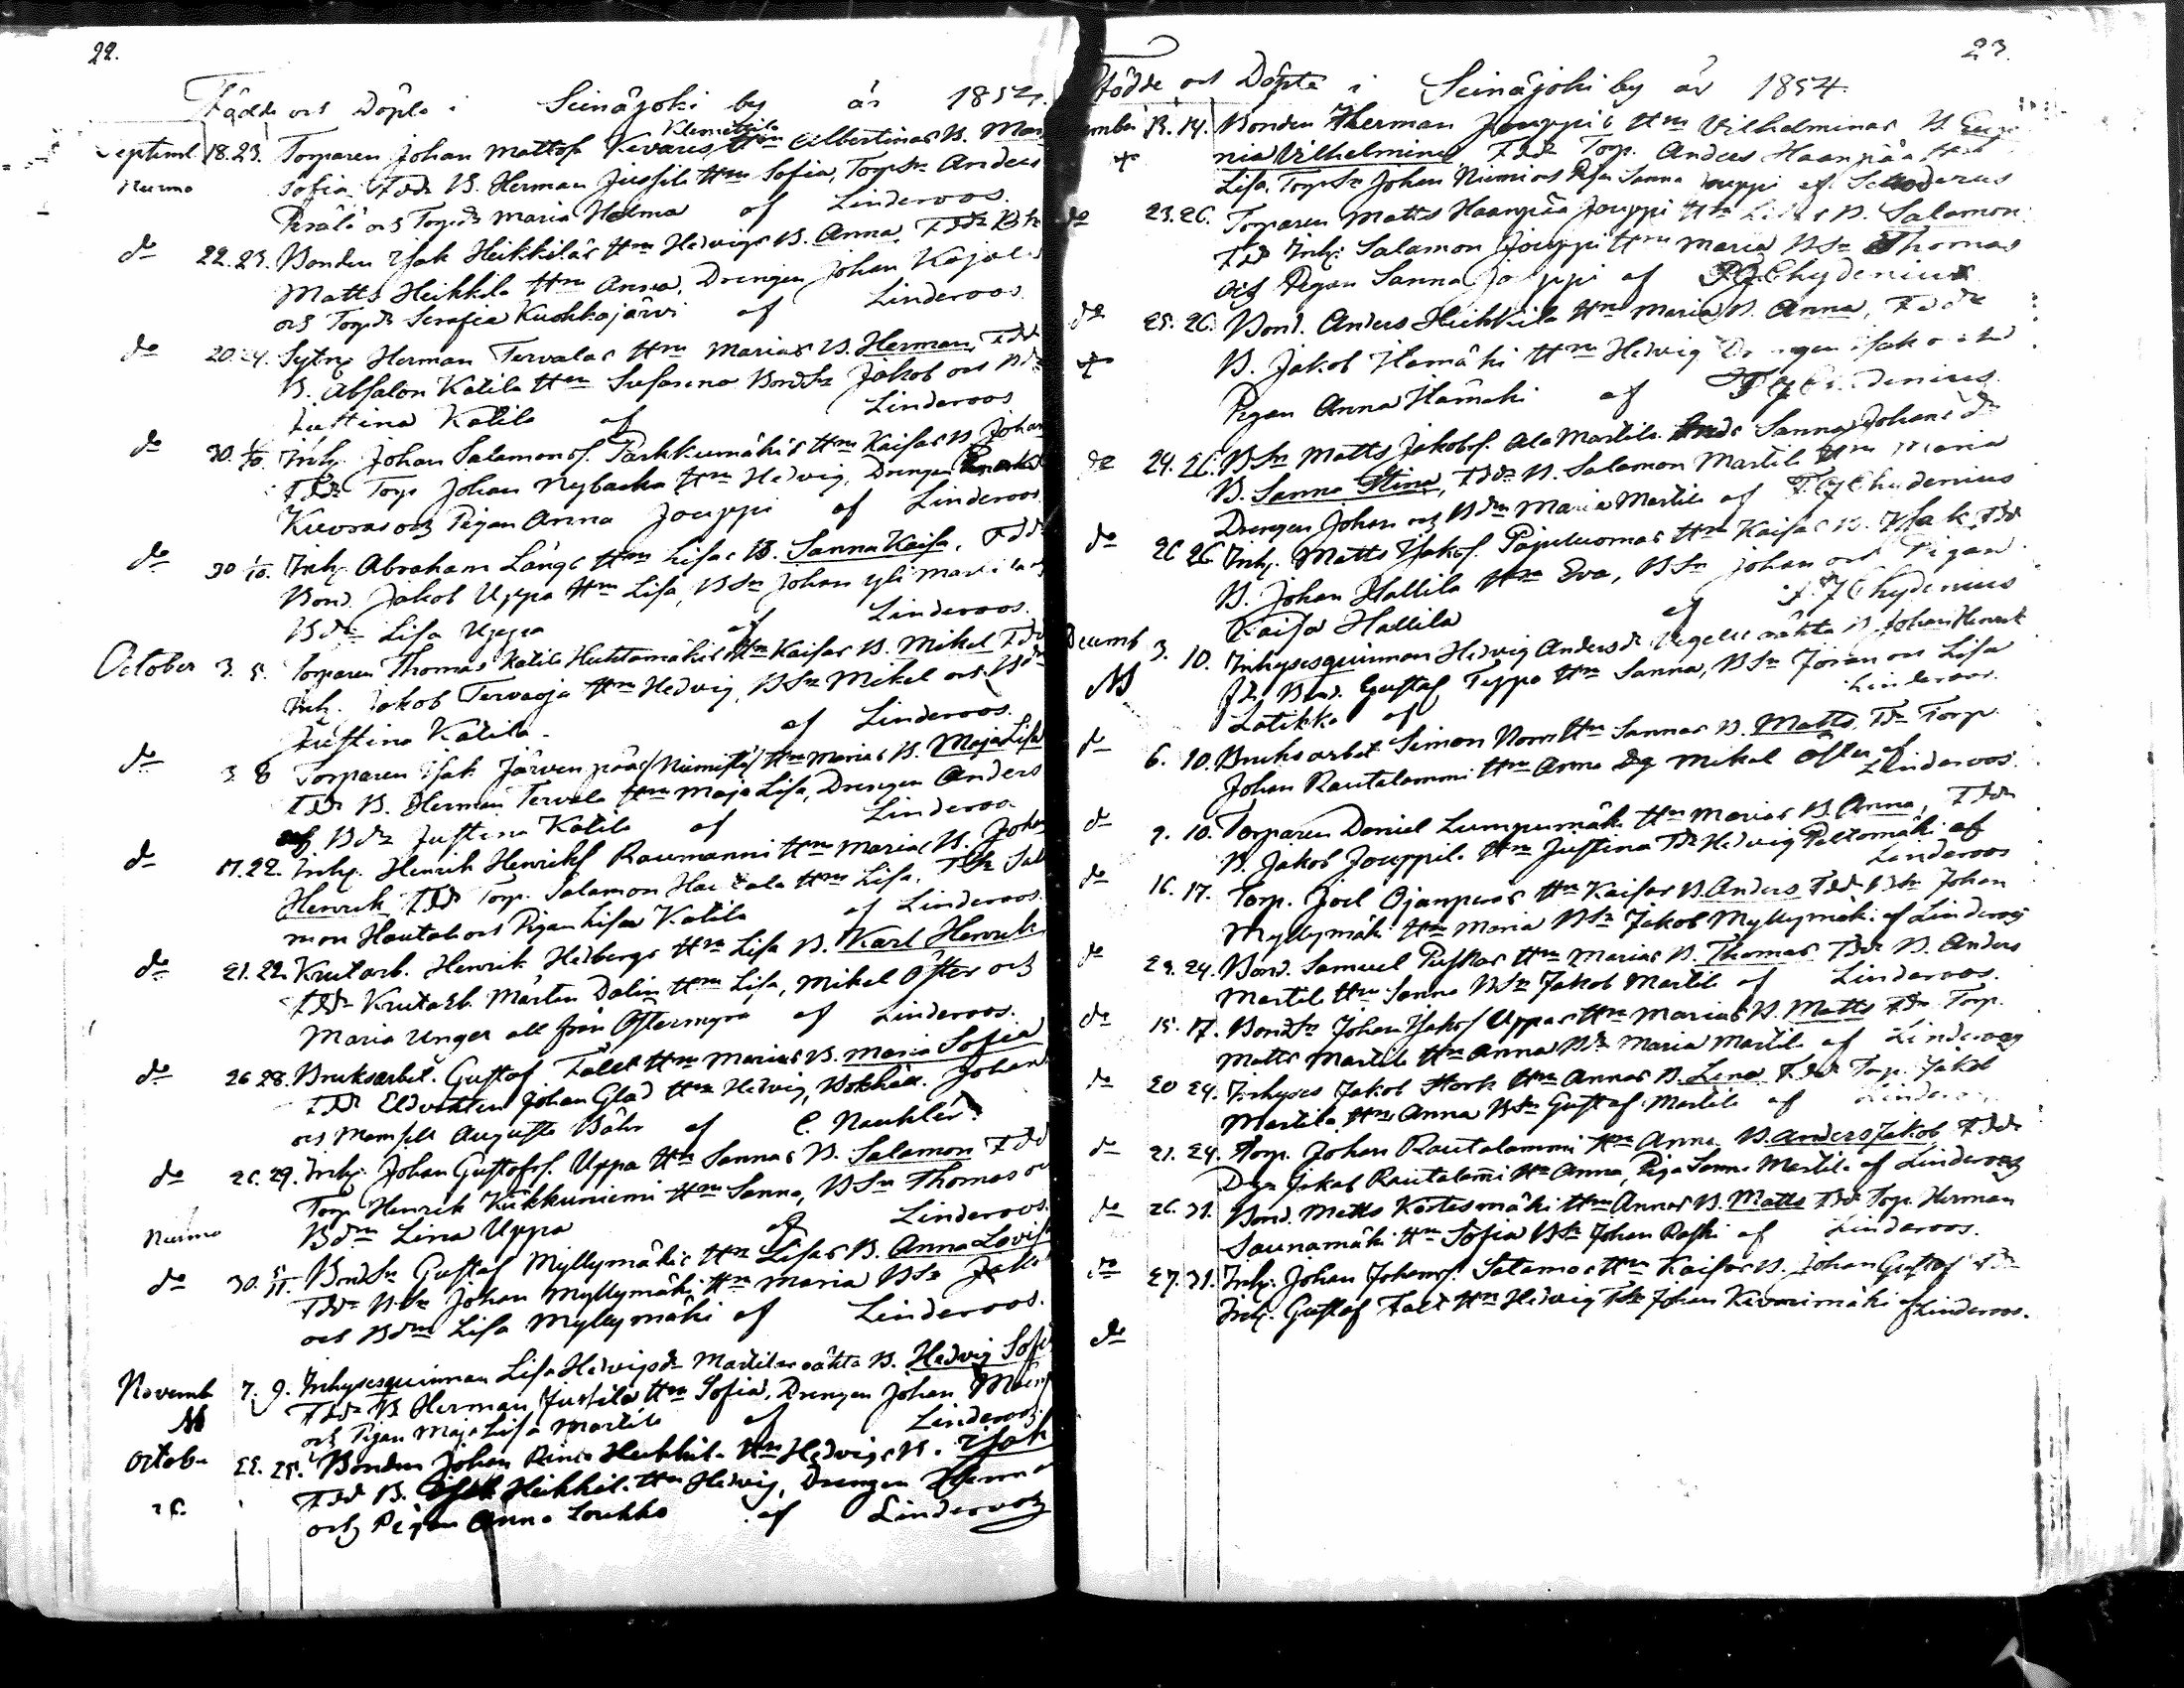 22.
Födde och Döpte i Seinäjoki by år 1854.
Septemb 18. 23. Torparen Johan Mattss. Kevares Klemettila Hm Albertinas B. Maria
Nurmo Sofia, Fdde B. Herman Jussila Hm Sofia, TorpSn Anders
Perälä och Torpdr Maria Holma af Linderoos.
do 22. 23. Bonden Isak Heikkiläs Hm Hedvigs B. Anna, Fddr BSn
Matts Heikkilä Hm Anna, Drengen Johan
och Torpdr Serafia Kuokkajärvi af Linderoos
do 20. 24. Sytn. Herman Tervalas Hm Marias B. Herman, Fddr
B. Absalon Katila Hm Susanna BondSn Jakob och Bdr
Justina Katila af Linderoos
do 30. 1/10. Inh. Johan Salamonss. Parkkumäkis Hm Kaisas B. Johan
Fddr Torp. Johan Nybacka Hm Hedvig, Drengen
Kuoras och Pigan Anna Jouppi af Linderoos
do 30 1/10. Inh. Abraham Långs Hm Lisas B. Sanna Kaisa, Fddr
Bond. Jakob Uppa Hm Lisa, BSn Johan Yli Martila
Bdr Lisa Uppa af Linderoos.
October 3. 5. Torparen Thomas Katila Huhtamäkis Hm Kaisas B. Mikel Fddr
Inh. Jakob Tervaoja Hm Hedvig, BSn Mikel och Bdr
Justina Katila af Linderoos.
do 3. 8 Torparen Isak Järvenpääs (Niemistö) Hm Marias B. Maja Lisa
Fddr B. Herman Tervala Hm Maja Lisa, Drengen Anders
och Bdr Justina Katila af Linderoos
do 17. 22. Inh. Henrik Henrikss. Raumanni Hm Marias B. Johan
Henrik, Fddr Torp. Salamon Hautala Hm Lisa, TSn Sala
mon Hautala och Pigan Lisa Katila af Linderoos.
do 21. 22. Krutarb. Henrik Hedbergs Hm Lisa B. Karl Henrik
Fddr Krutarb. Mårten Dalin Hm Lisa, Mikel Öster och
Maria Unger all från Östermyra af Linderoos.
do 26 28. Bruksarbet. Gustaf Fallt Hm Marias B. Maria Sofia
Fddr Eldvakten Johan Glad Hm Hedvig, Bokhåll. Johan
och Mamsell Augusta Bähr af C. Nauklér.
do 26. 29. Inh. Johan Gustafss. Uppa Hm Sannas B. Salamon Fddr
Torp Henrik Kiikkuniemi Hm Sanna, BSn Thomas o
Nurmo Bdrn Lina Uppa af Linderoos.
do 30. 5/11. BondSn Gustaf Myllymäkis Hm Lisas B. Anna Lovisa
Fddr BSn Johan Myllymäki Hm Maria BSn Jakob
och Bdrn Lisa Myllymäki af Linderoos.
Novemb 7. 9. Inhysesquinnan Lisa Hedvigsdr Martilas oäkta B. Hedvig Sofia
M Fddr B. Herman Jussila Hm Sofia, Drengen Johan
och Pigan Maja Lisa Martila af Linderoos
Octobr 22. 25. Bonden Johan Heikkilä Hm Hedvigs B. Isak
Fddr B. Isak Heikkil. Hm Hedvig, Drengen Herman
26. och Pigan Anna Loukko af Linderoos
23.
Födde och Döpte i Seinäjoki by år 1854.
ember 13. 14. Bonden Herman Jouppis Hm Vilhelminas B. Euge
nia Vilhelmina, Fddr Torp. Anders Haanpää Hm
Lisa, TorpSn Johan Niemi och Pigan Sanna Jouppi af
do 23. 26. Torparen Matts Haanpää Jouppi Hm Lisas B. Salamon
Fddr Inh. Salamon Jouppi Hm Maria BSn Thomas
och Pigan Sanna Jouppi af Chydenius
do 25. 26. Bond. Anders Heikkilä Hm Marias B. Anna, Fddr
B. Jakob Ilamäki Hm Hedvig Drengen Isak och
Pigan Anna Ilamäki af Chydenius.
do 24. 26. BSn Matts Jakobss. Ala Martila Sanna Johansdr
B. Sanna Stina, Fddr B. Salamon Martila Hm Maria
Drengen Johan och Bdrn Maria Martila af Chydenius
do 26 26 Inh. Matts Isakss. Pajuluomas Hm Kaisas B. Isak, Fddr
B. Johan Hallila Hm Eva, BSn Johan och Pigan
Kaisa Hallila af Chydenius
Decemb 3. 10. Inhysesquinnan Hedvig Andersdr oäkta B. Johan Henrik
M Fdr Bond. Gustaf Teppo Hm Sanna, BSn Jöran och Lisa
Latikka af Linderoos.
do 6. 10. Bruksarbet Simon Norr Hm Sannas B. Matts, Fdr Torp
Johan Rautalammi Hm Anna Dg Mikel Öster af Linderoos.
do 9. 10. Torparen Daniel Lumpumäki Hm Marias B. Anna, Fddr
B. Jakob Jouppil. Hm Justina Tdr Hedvig Paltomäki af Linderoos
do 16. 17. Torp. Joel Ojanperäs Hm Kaisas B. Anders Fddr BSn Johan
Myllymäki Hm Maria BSn Jakob Myllymäki af Linderoos
do 23. 24. Bond. Samuel Puskas Hm Marias B. Thomas, Fddr B. Anders
Martila Hm Sanna BSn Jakob Martila af Linderoos.
do 15. 17. BondSn Johan Isakss Uppas Hm Marias B. Matts Fddr Torp.
Matts Martila Hm Anna Bdr Maria Martila af Linderoos
do 20 24. Inhyses Jakob Stork Hm Annas B. Lena, Fddr Torp. Jakob
Martila Hm Anna BSn Gustaf Martila af Linderoos
do 21. 24. Torp. Johan Rautalammi Hm Anna B. Anders Jakob, Fddr
Dgn Jakob Rautalammi Hm Anna, Piga Sanna Martila af Linderoos
do 26. 31. Bond. Matts Kortesmäki Hm Annas B. Matts Fddr Torp. Herman
Saunamäki Hm Sofia BSn Johan Raski af Linderoos.
do 27. 31. Inh. Johan Johanss. Satamas Hm Kaisas B. Johan Gustaf Fddr
Inh. Gustaf Falt Hm Hedvig TSn Johan Kevarimäki af Linderoos.
do